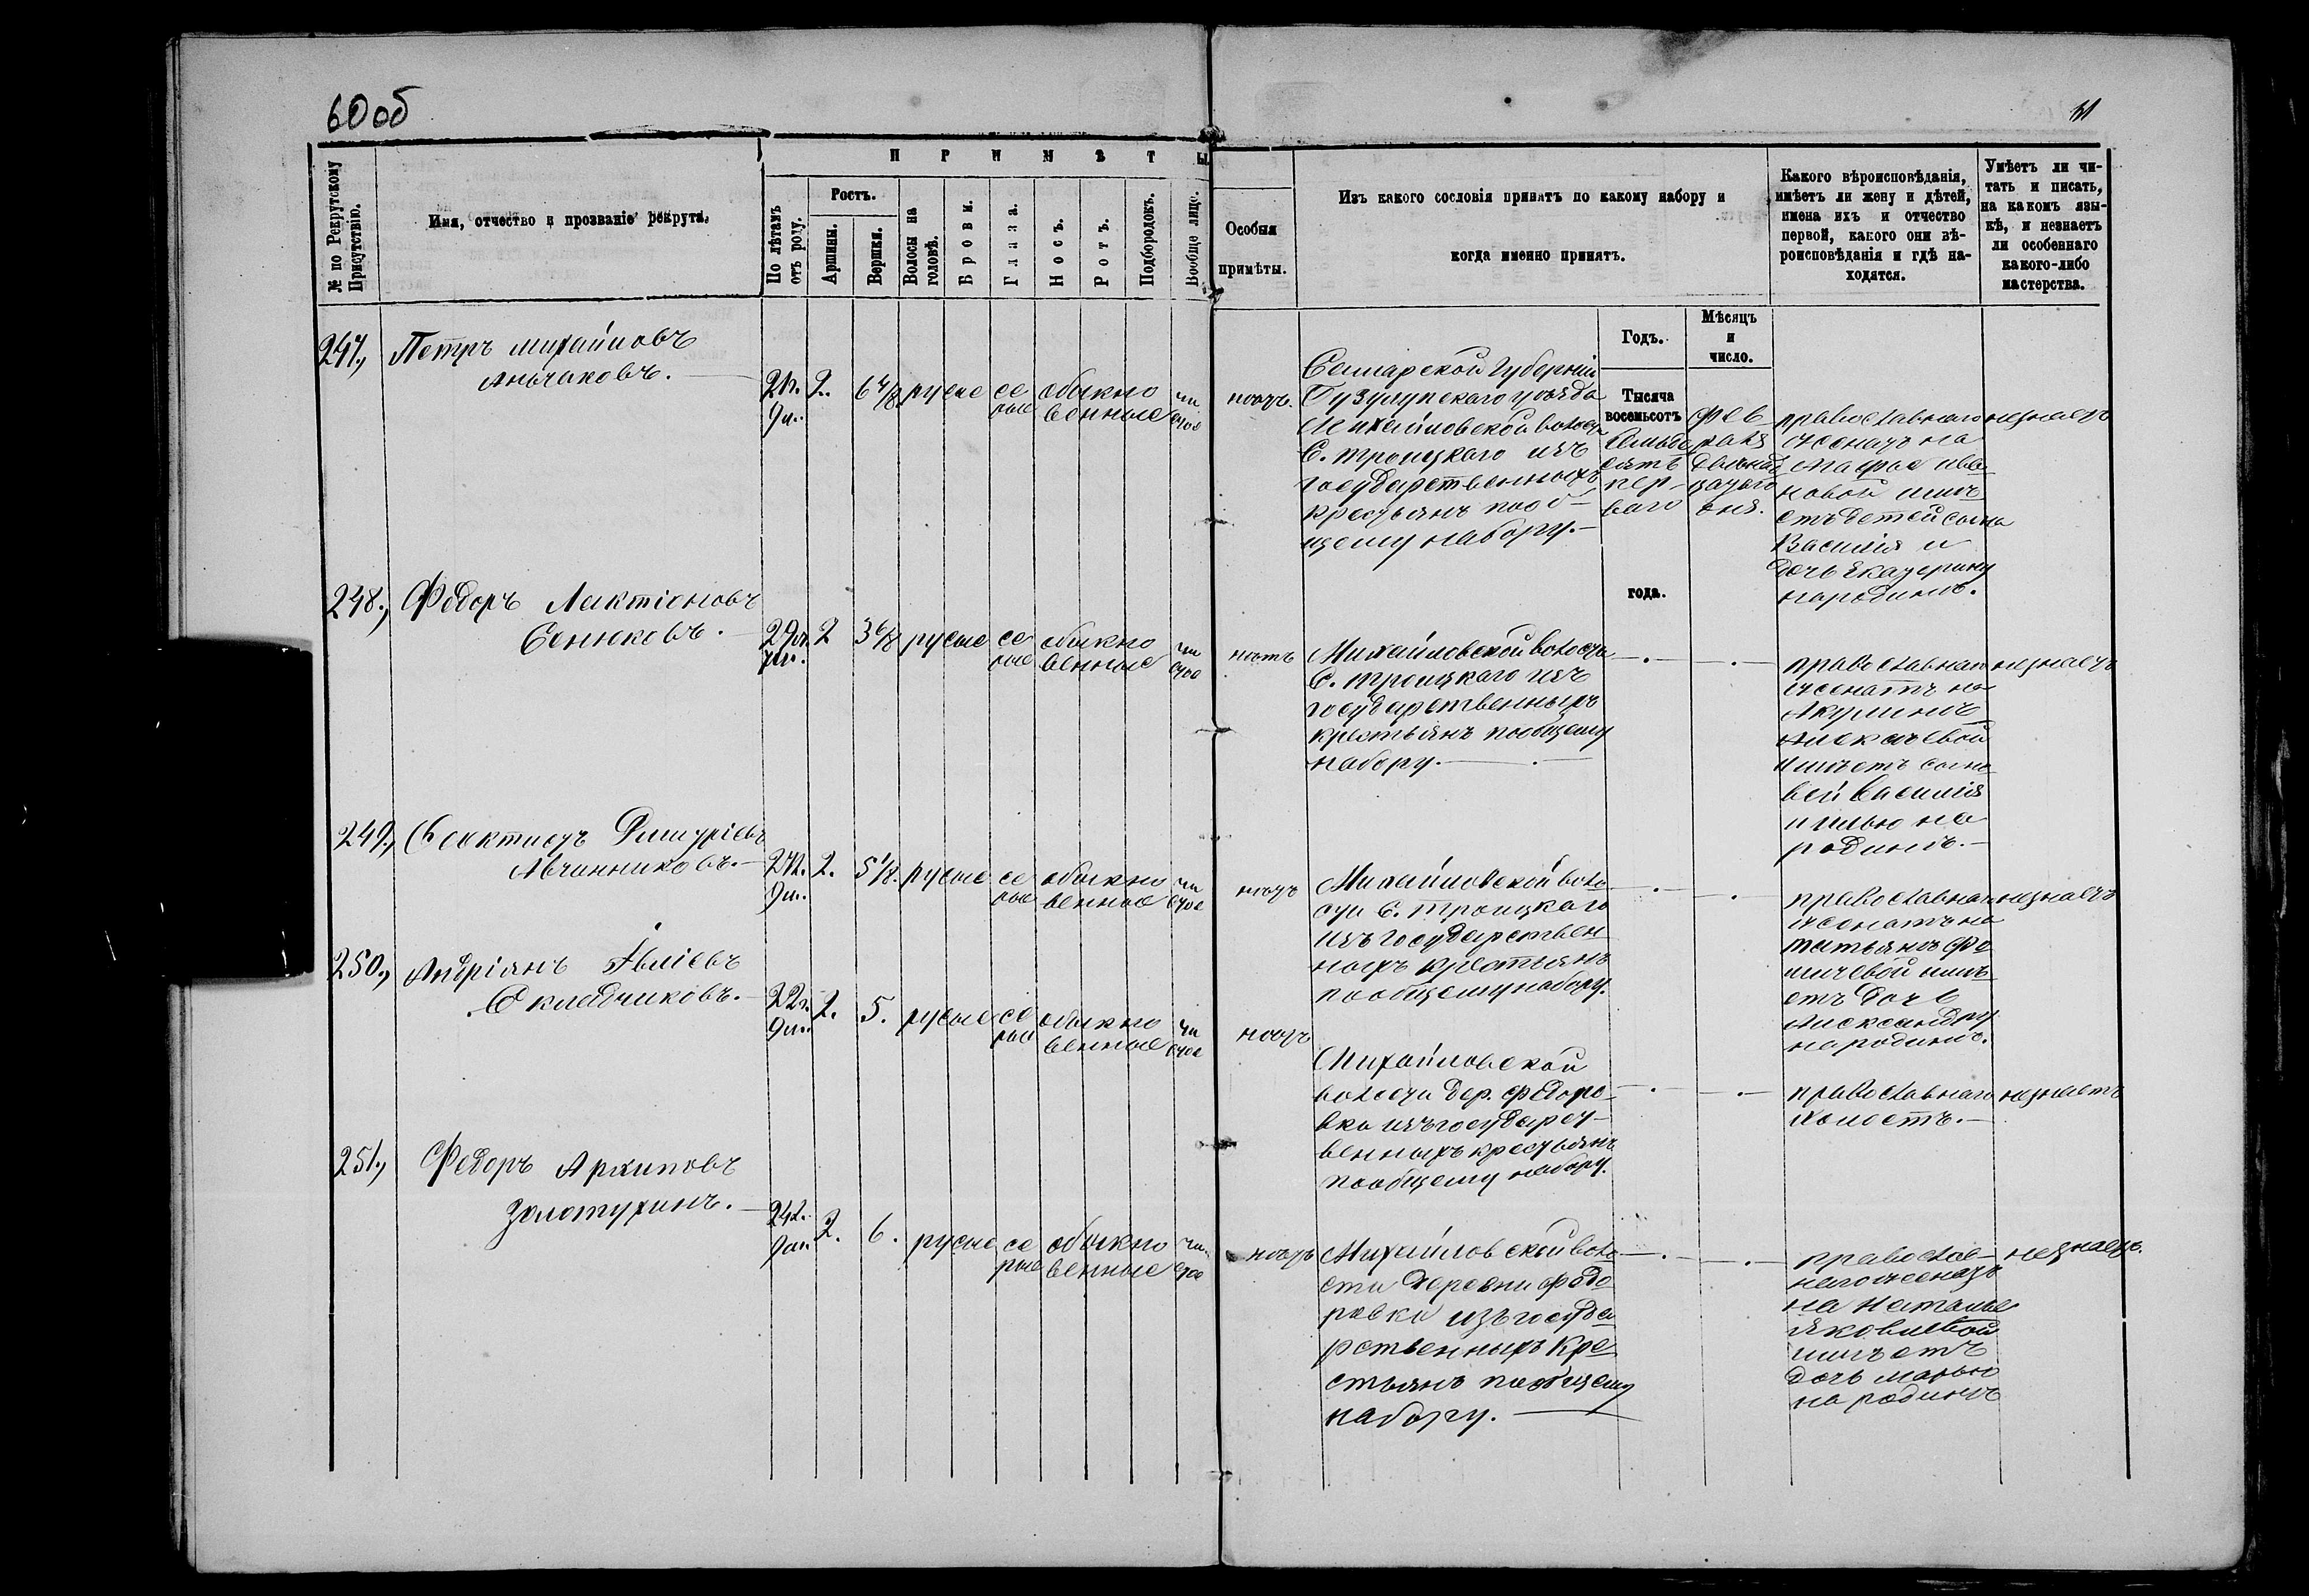 60 об
61
№ по Рекрутскому Присутствію.
Имя, отчество и прозваніе рекрута.
ПРИМѢТЫ
По лѣтамъ отъ роду.
Ростъ.
Аршины.
Вершки.
Волосы на головѣ.
Брови.
Глаза.
Носъ.
Ротъ.
Подбородокъ.
Вообще лице.
Особыя
примѣты.
Изъ какого сословія принятъ по какому набору и
когда именно принятъ.
Какого вѣроисповѣданія,
имѣетъ ли жену и дѣтей,
имена ихъ и отчество
первой, какого они вѣ-
роисповѣданія и гдѣ на-
ходятся.
Умѣетъ ли чи-
тать и писать,
на какомъ язы-
кѣ, и незнаетъ
ли особеннаго
какого-либо
мастерства.
Годъ.
Мѣсяцъ
и
число.
247.,
Петръ Михайловъ
21г.
9м.
2.
6 4/8
русые
се
рые
обыкно
венные
чи
стое
нѣтъ.
Самарской Губерніи
Бузулукскаго уѣзда
Михайловской волости
С. Троицкаго изъ
государственныхъ
крестьянъ пооб-
щему набору.
Тысяча
восемьсотъ
семьде
сятъ
пер-
ваго
года.
Фев
раля
двѣнад
цатаго
дня.
православнаго
женатъ на
Марфѣ Ива
новой имѣ
етъ детей сына
Василія и
дочь Екатерину
народинѣ.
незнаетъ
248.,
Федоръ Лактіоновъ
Сенюковъ.
2
3 6/8
русые
се
рые
обыкно
венные
чи
стое
нѣтъ
Михайловской волости
С. Троицкаго изъ
государственныхъ
крестьянъ пообщему
набору.
православнаго
женатъ на
Акулинѣ
Алексѣевой
имѣетъ сыно
вей Василія
и Илью на
родинѣ.
незнаетъ
249.,
Феоктистъ Дмитріевъ
Авчинниковъ.
9м.
2.
5 1/8.
русые
се
рые
обыкно
венные
чи
стое
нѣтъ
Михайловской воло
сти С. Троицкаго
изъ государствен
ныхъ крестьянъ
пообщему набору.
православнаго
женатъ на
Татьянѣ Фо
мичевой имѣ
етъ дочь
Александру
народинѣ.
незнаетъ
250.,
Андріянъ Ивліевъ
Складчиковъ.
22г.
9м.
2.
5.
русые
се
рые
обыкно
венные
чи
стое
нѣтъ
Михайловской
волости дер. Федоро
вки изъ государст-
венныхъ крестьянъ
пообщему набору.
православнаго
холостъ.
незнаетъ
251.,
Федоръ Архиповъ
Золотухинъ.
2.
6.
русые
се
рые
обыкно
венные
чи
стое
нѣтъ
Михайловской воло
сти деревни Федо
ровки изъ государ
рственныхъ кре
стьянъ пообщему
набору.
православ-
наго женатъ
на Натальѣ
Яковлевой
имѣетъ
дочь Марью
на родинѣ
незнаетъ.